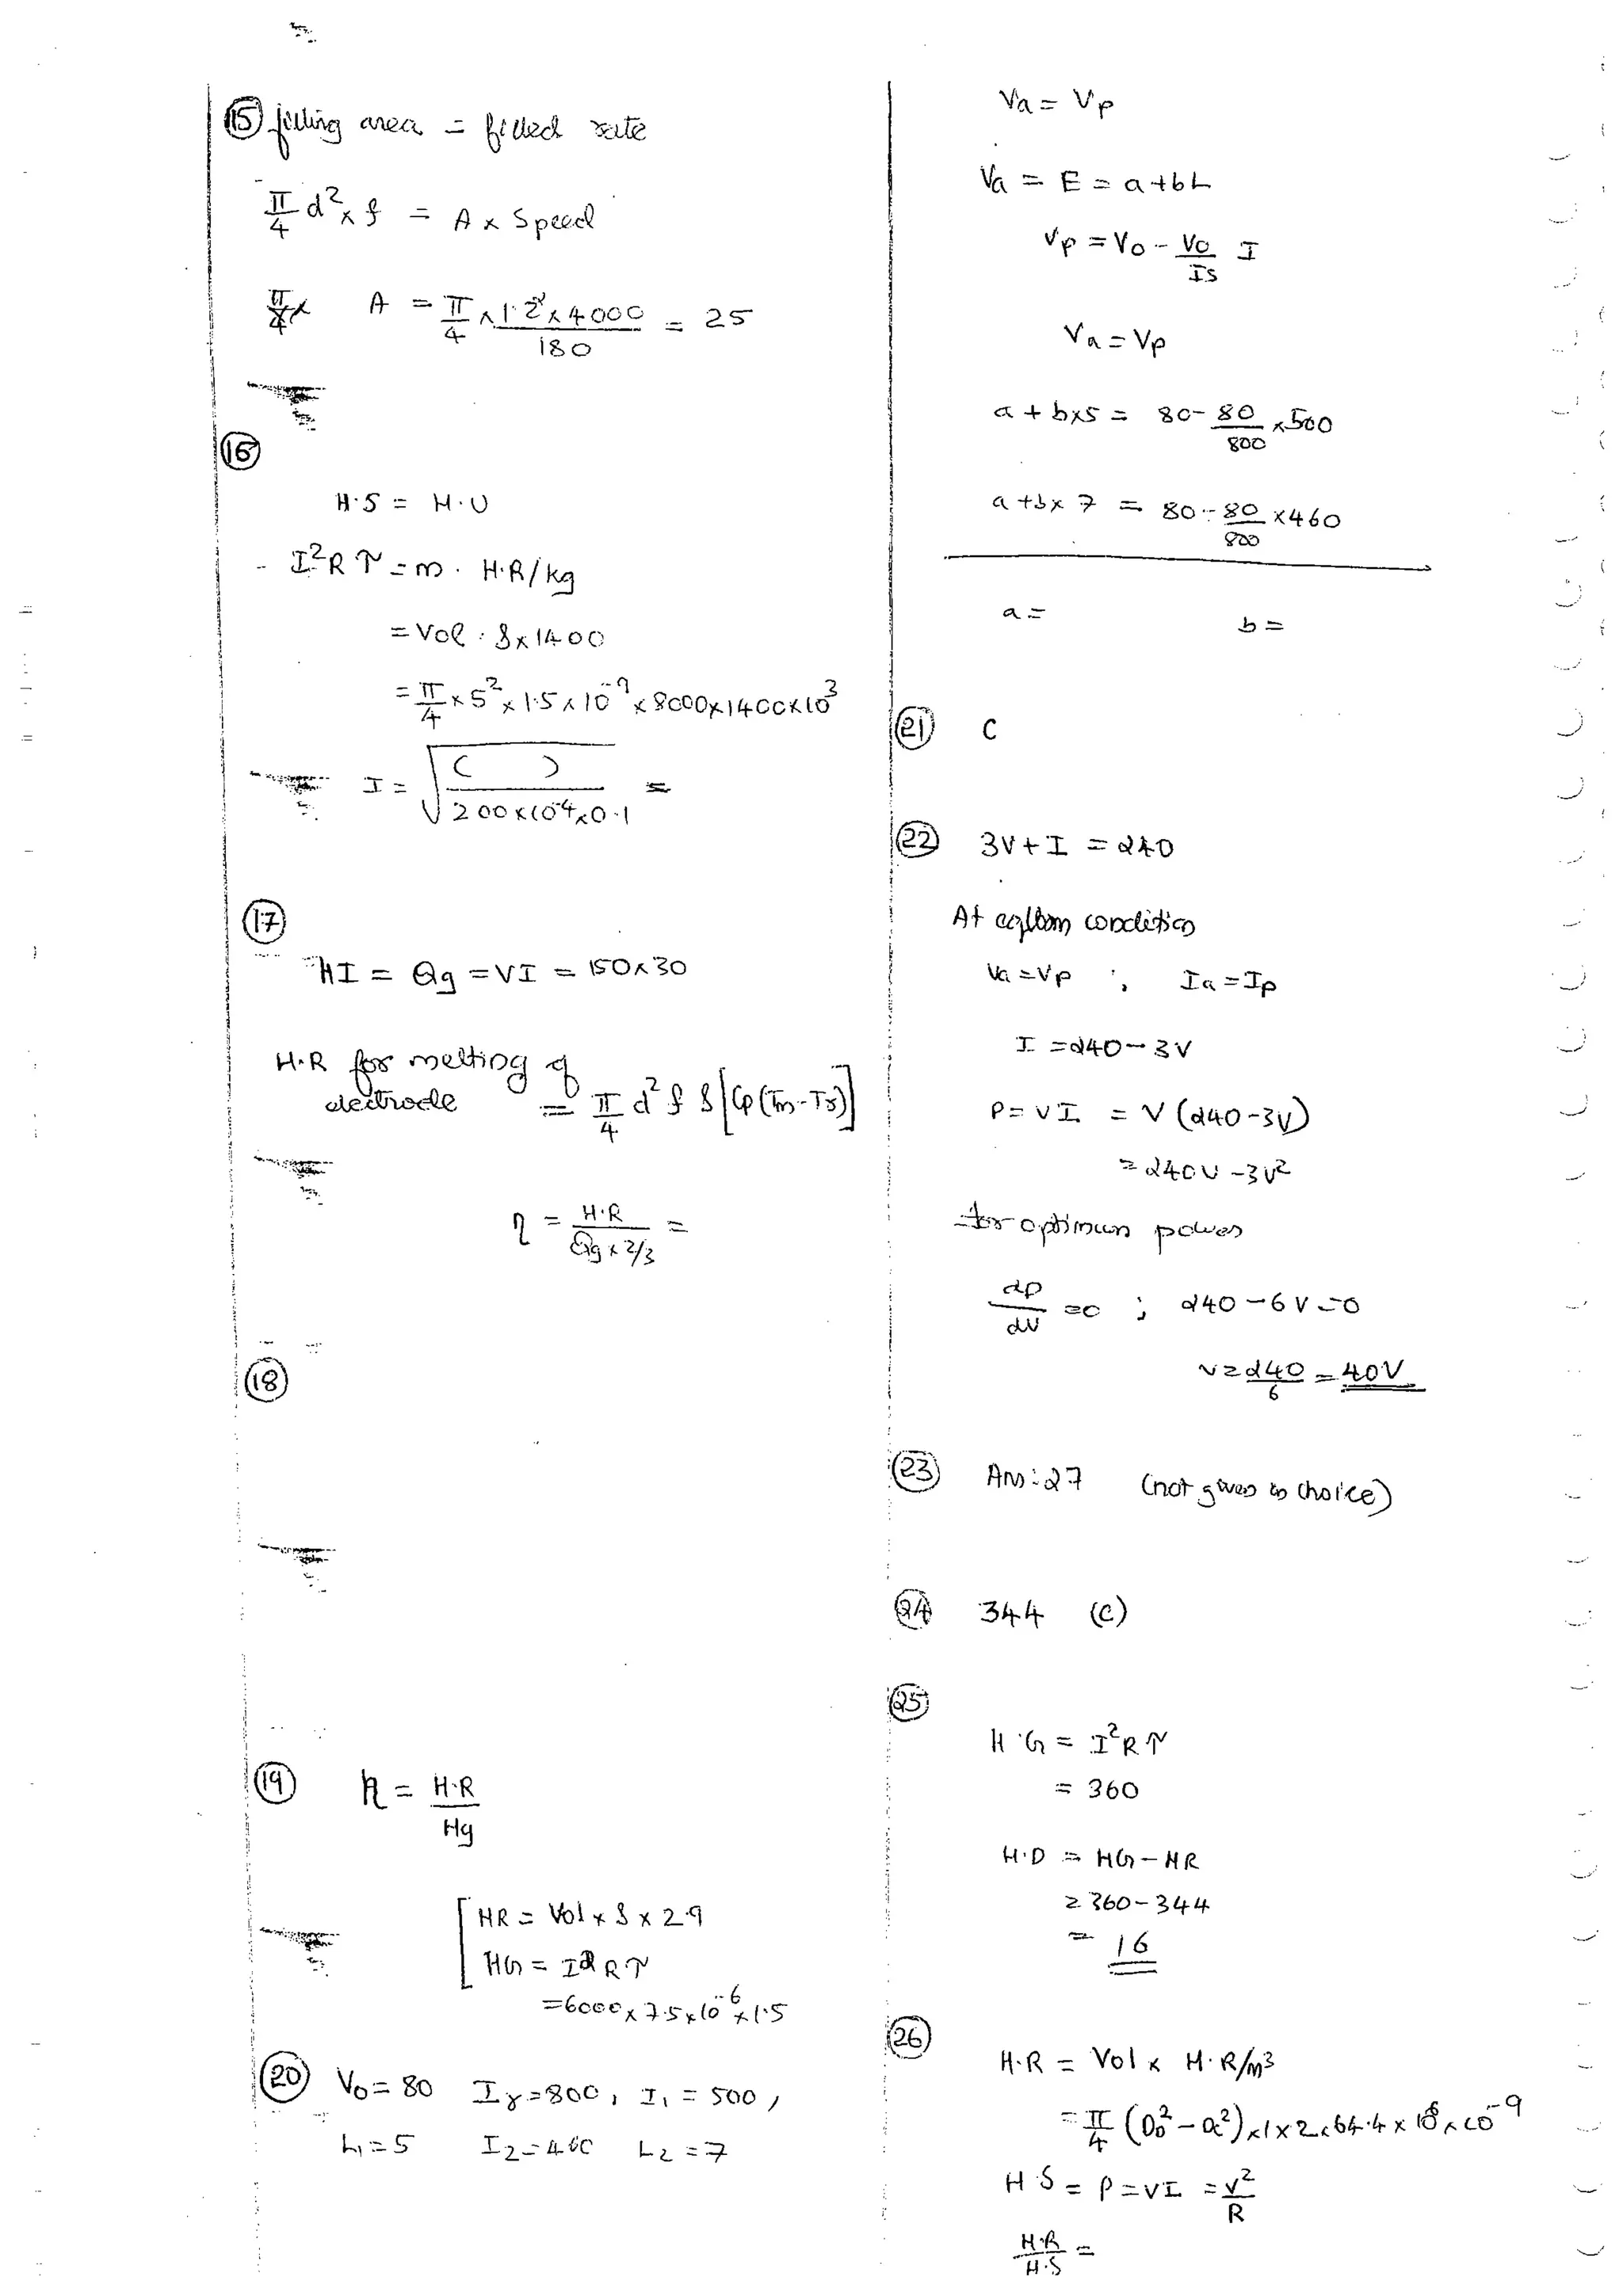 15 filling area = filled rate
π/4 d² x f = A x Speed
π/4 x A = π/4 x 1.2² x 4000 / 180 = 25
16
H.S = H.U
I²Rτ = m. H.R/kg
= Vol. ρ x 1400
= π/4 x 5² x 1.5 x 10⁻⁹ x 8000 x 1400 x 10³
I = √( ( ) / 200 x 10⁻⁴ x 0.1 ) =
17
HI = Qg = VI = 150 x 30
H.R for melting of
electrode = π/4 d² f ρ [Cp(Tm-Tr)]
η = H.R / Qg x 2/3 =
18
19 η = H.R / Hg
HR = Vol x ρ x 2.9
HG = I² R τ
= 6000 x 7.5 x 10⁻⁶ x 1.5
20 V₀ = 80 Iγ = 800, I₁ = 500,
L₁ = 5 I₂ = 460 L₂ = 7
Va = Vp
Va = E = a + bL
Vp = V₀ - V₀/Is I
Va = Vp
a + bx5 = 80 - 80/800 x 500
a + bx 7 = 80 - 80/800 x 460
a = b =
21 C
22 3V + I = 240
At eqlbm condition
Va = Vp ; Ia = Ip
I = 240 - 3V
P = VI = V (240 - 3V)
= 240V - 3V²
for optimum power
dp/dv = 0 ; 240 - 6V = 0
V = 240/6 = 40V
23 Ans: 27 (not given in choice)
24 344 (C)
25
H.G = I²Rτ
= 360
H.D = HG - HR
= 360 - 344
= 16
26
H.R = Vol x H.R/m³
= π/4 (D₀² - Dc²) x 1 x 2 x 64.4 x 10⁶ x 10⁻⁹
H S = P = VI = V²/R
H.R/H.S =